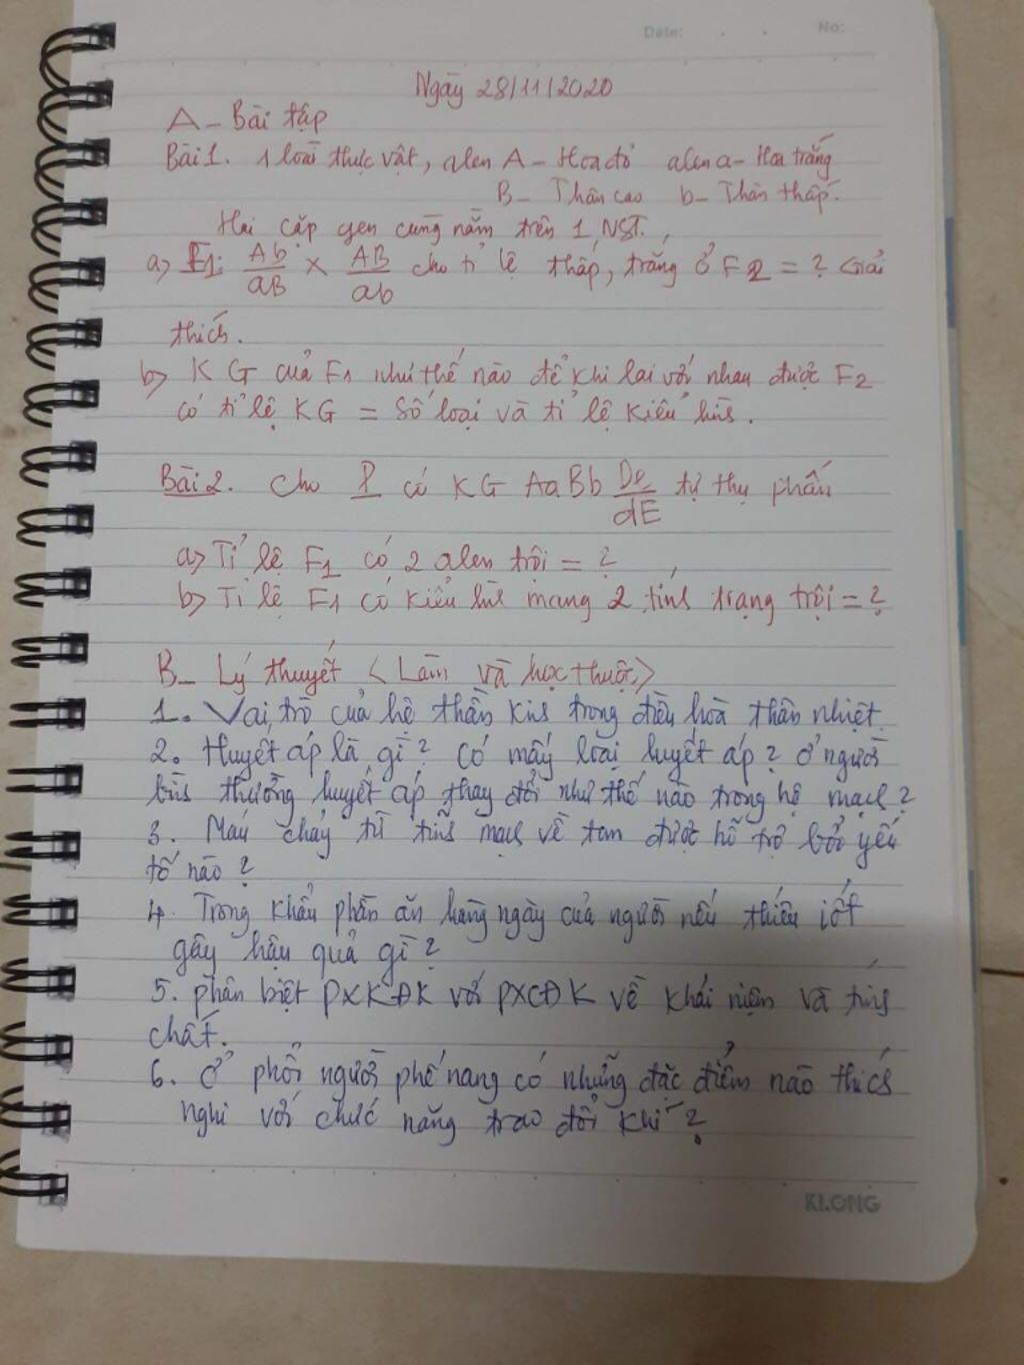 Date: . . No:
Ngày 28/11/2020
A - Bài tập
Bài 1. 1 loài thực vật, alen A - Hoa đỏ alen a - Hoa trắng
B - Thân cao b - Thân thấp.
Hai cặp gen cùng nằm trên 1 NST.
a) F1: Ab/aB × AB/ab cho tỉ lệ thấp, trắng ở F2 = ? Giải
thích.
b) KG của F1 như thế nào để khi lai với nhau được F2
có tỉ lệ KG = số loại và tỉ lệ kiểu hình.
Bài 2. Cho P có KG AaBb De/dE tự thụ phấn
a) Tỉ lệ F1 có 2 alen trội = ?
b) Tỉ lệ F1 có kiểu hình mang 2 tính trạng trội = ?
B - Lý thuyết <Làm và học thuộc>
1. Vai trò của hệ thần kinh trong điều hoà thân nhiệt.
2. Huyết áp là gì? Có mấy loại huyết áp? Ở người
bình thường huyết áp thay đổi như thế nào trong hệ mạch?
3. Máu chảy từ tĩnh mạch về tim được hỗ trợ bởi yếu
tố nào?
4. Trong khẩu phần ăn hàng ngày của người nếu thiếu iốt
gây hậu quả gì?
5. Phân biệt PXKĐK với PXCĐK về khái niệm và tính
chất.
6. Ở phổi người phế nang có những đặc điểm nào thích
nghi với chức năng trao đổi khí?
KLONG